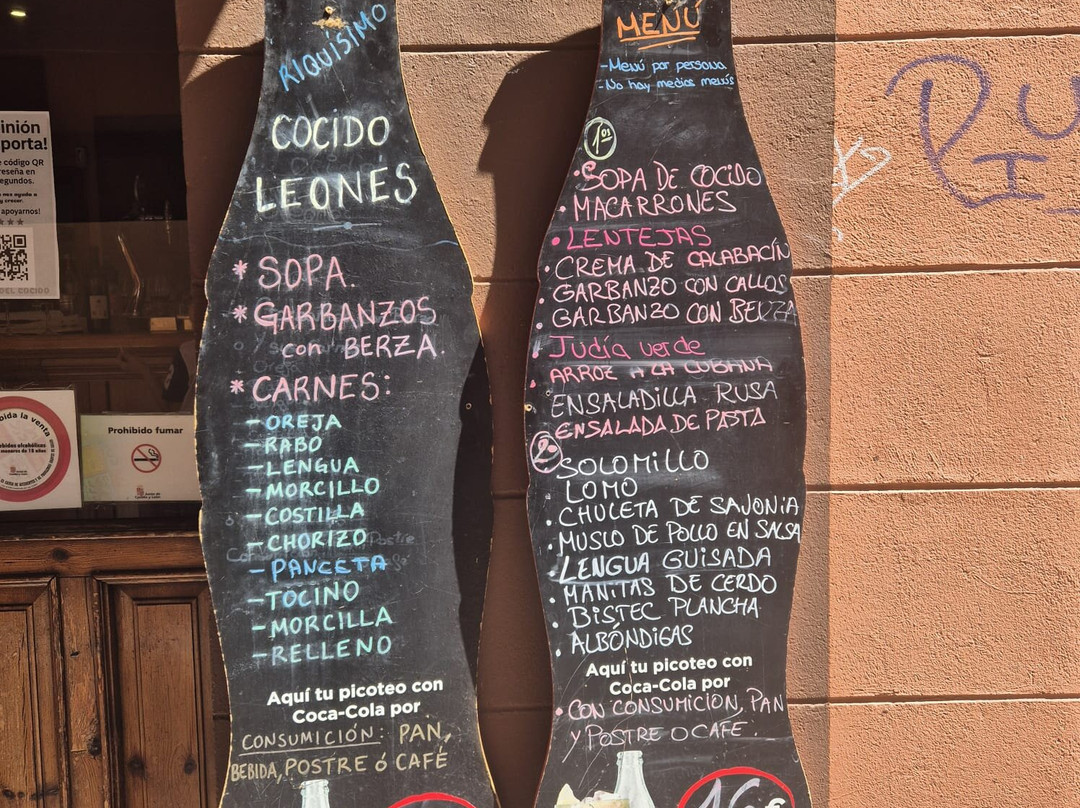 inión
porta!
código QR
reseña en
egundos.
apoyarnos!
DEL COCIDO
Prohibido fumar
RIQUÍSIMO
COCIDO
LEONÉS
* SOPA.
* GARBANZOS
con BERZA.
* CARNES:
- OREJA
- RABO
- LENGUA
- MORCILLO
- COSTILLA
- CHORIZO
- PANCETA
- TOCINO
- MORCILLA
- RELLENO
Aquí tu picoteo con
Coca-Cola por
CONSUMICIÓN: PAN,
BEBIDA, POSTRE Ó CAFÉ
MENÚ
- Menú por persona
- No hay medios menús
1os
• SOPA DE COCIDO
• MACARRONES
• LENTEJAS
• CREMA DE CALABACÍN
• GARBANZO CON CALLOS
• GARBANZO CON BERZA
• Judía verde
• ARROZ A LA CUBANA
ENSALADILLA RUSA
• ENSALADA DE PASTA
2º
• SOLOMILLO
LOMO
• CHULETA DE SAJONIA
• MUSLO DE POLLO EN SALSA
• LENGUA GUISADA
• MANITAS DE CERDO
• BISTEC PLANCHA
• ALBÓNDIGAS
Aquí tu picoteo con
Coca-Cola por
• CON CONSUMICION, PAN
y POSTRE O CAFE.
16€